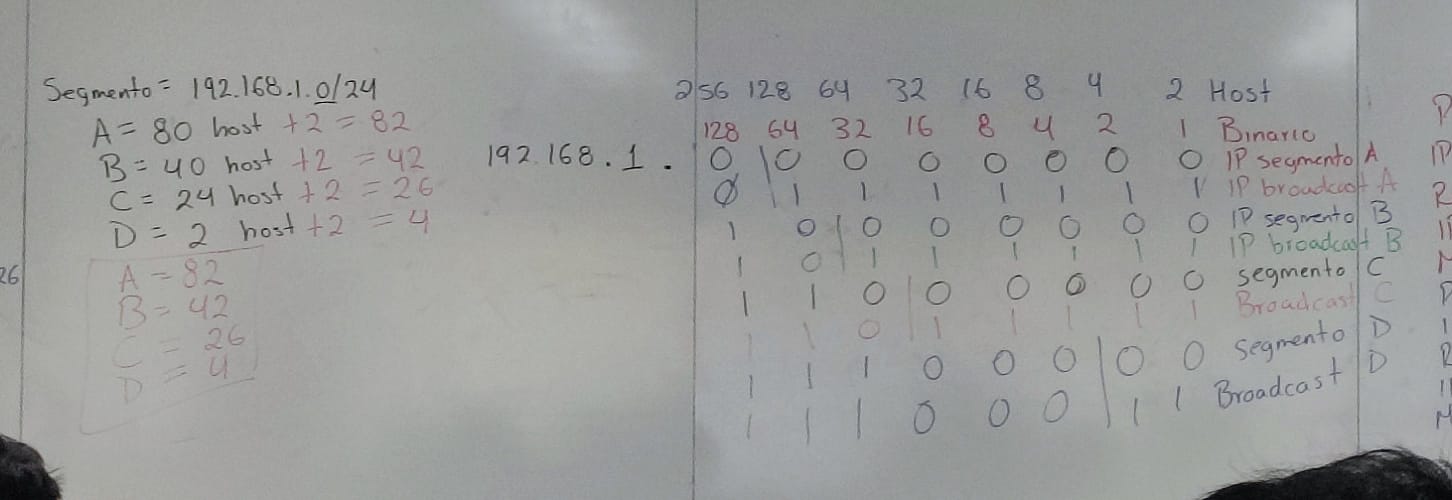 Segmento = 192.168.1.0/24
A = 80 host +2 = 82
B = 40 host +2 = 42
C = 24 host +2 = 26
D = 2 host +2 = 4
A = 82
B = 42
C = 26
D = 4
26
256 128 64 32 16 8 4 2 Host
128 64 32 16 8 4 2 1 Binario
192.168.1. 0|0 0 0 0 0 0 0 IP segmento A
0|1 1 1 1 1 1 1 IP broadcast A
1 0|0 0 0 0 0 0 IP segmento B
1 0|1 1 1 1 1 1 IP broadcast B
1 1 0|0 0 0 0 0 segmento C
1 1 0|1 1 1 1 1 Broadcast C
1 1 1 0 0 0|0 0 Segmento D
1 1 1 0 0 0|1 1 Broadcast D
IP